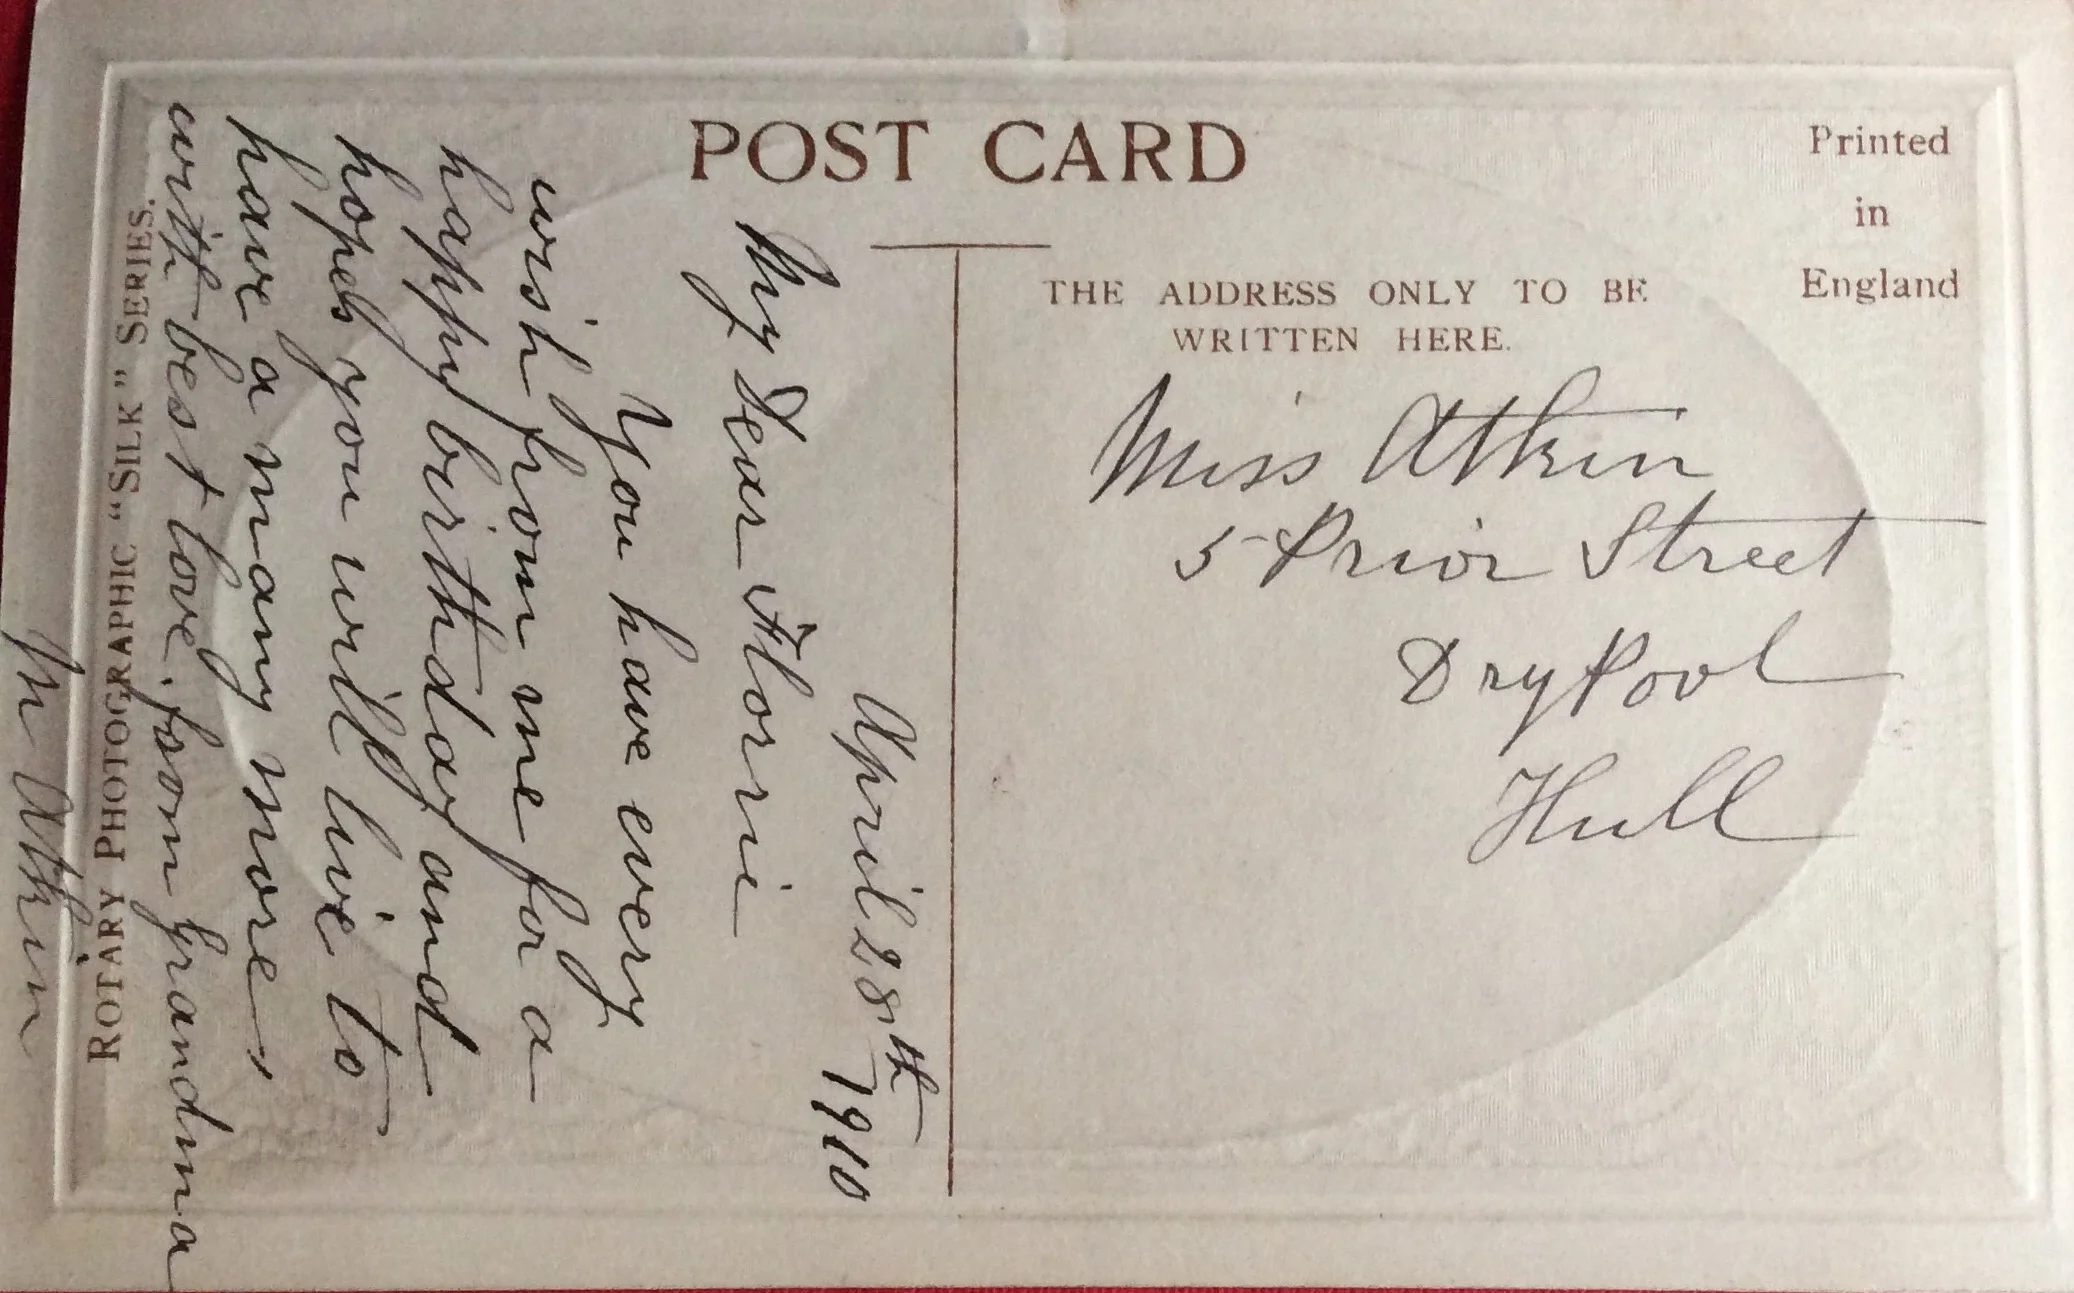 POST CARD
Printed
in
England
THE ADDRESS ONLY TO BE
WRITTEN HERE.
Miss Atkin
5 Prior Street
DryPool
Hull
April 28th 1910
My Dear Florrie
You have every
wish from me for a
happy birthday and
hopes you will live to
have a many more,
with best love. from Grandma
M Atkin
ROTARY PHOTOGRAPHIC "SILK" SERIES.